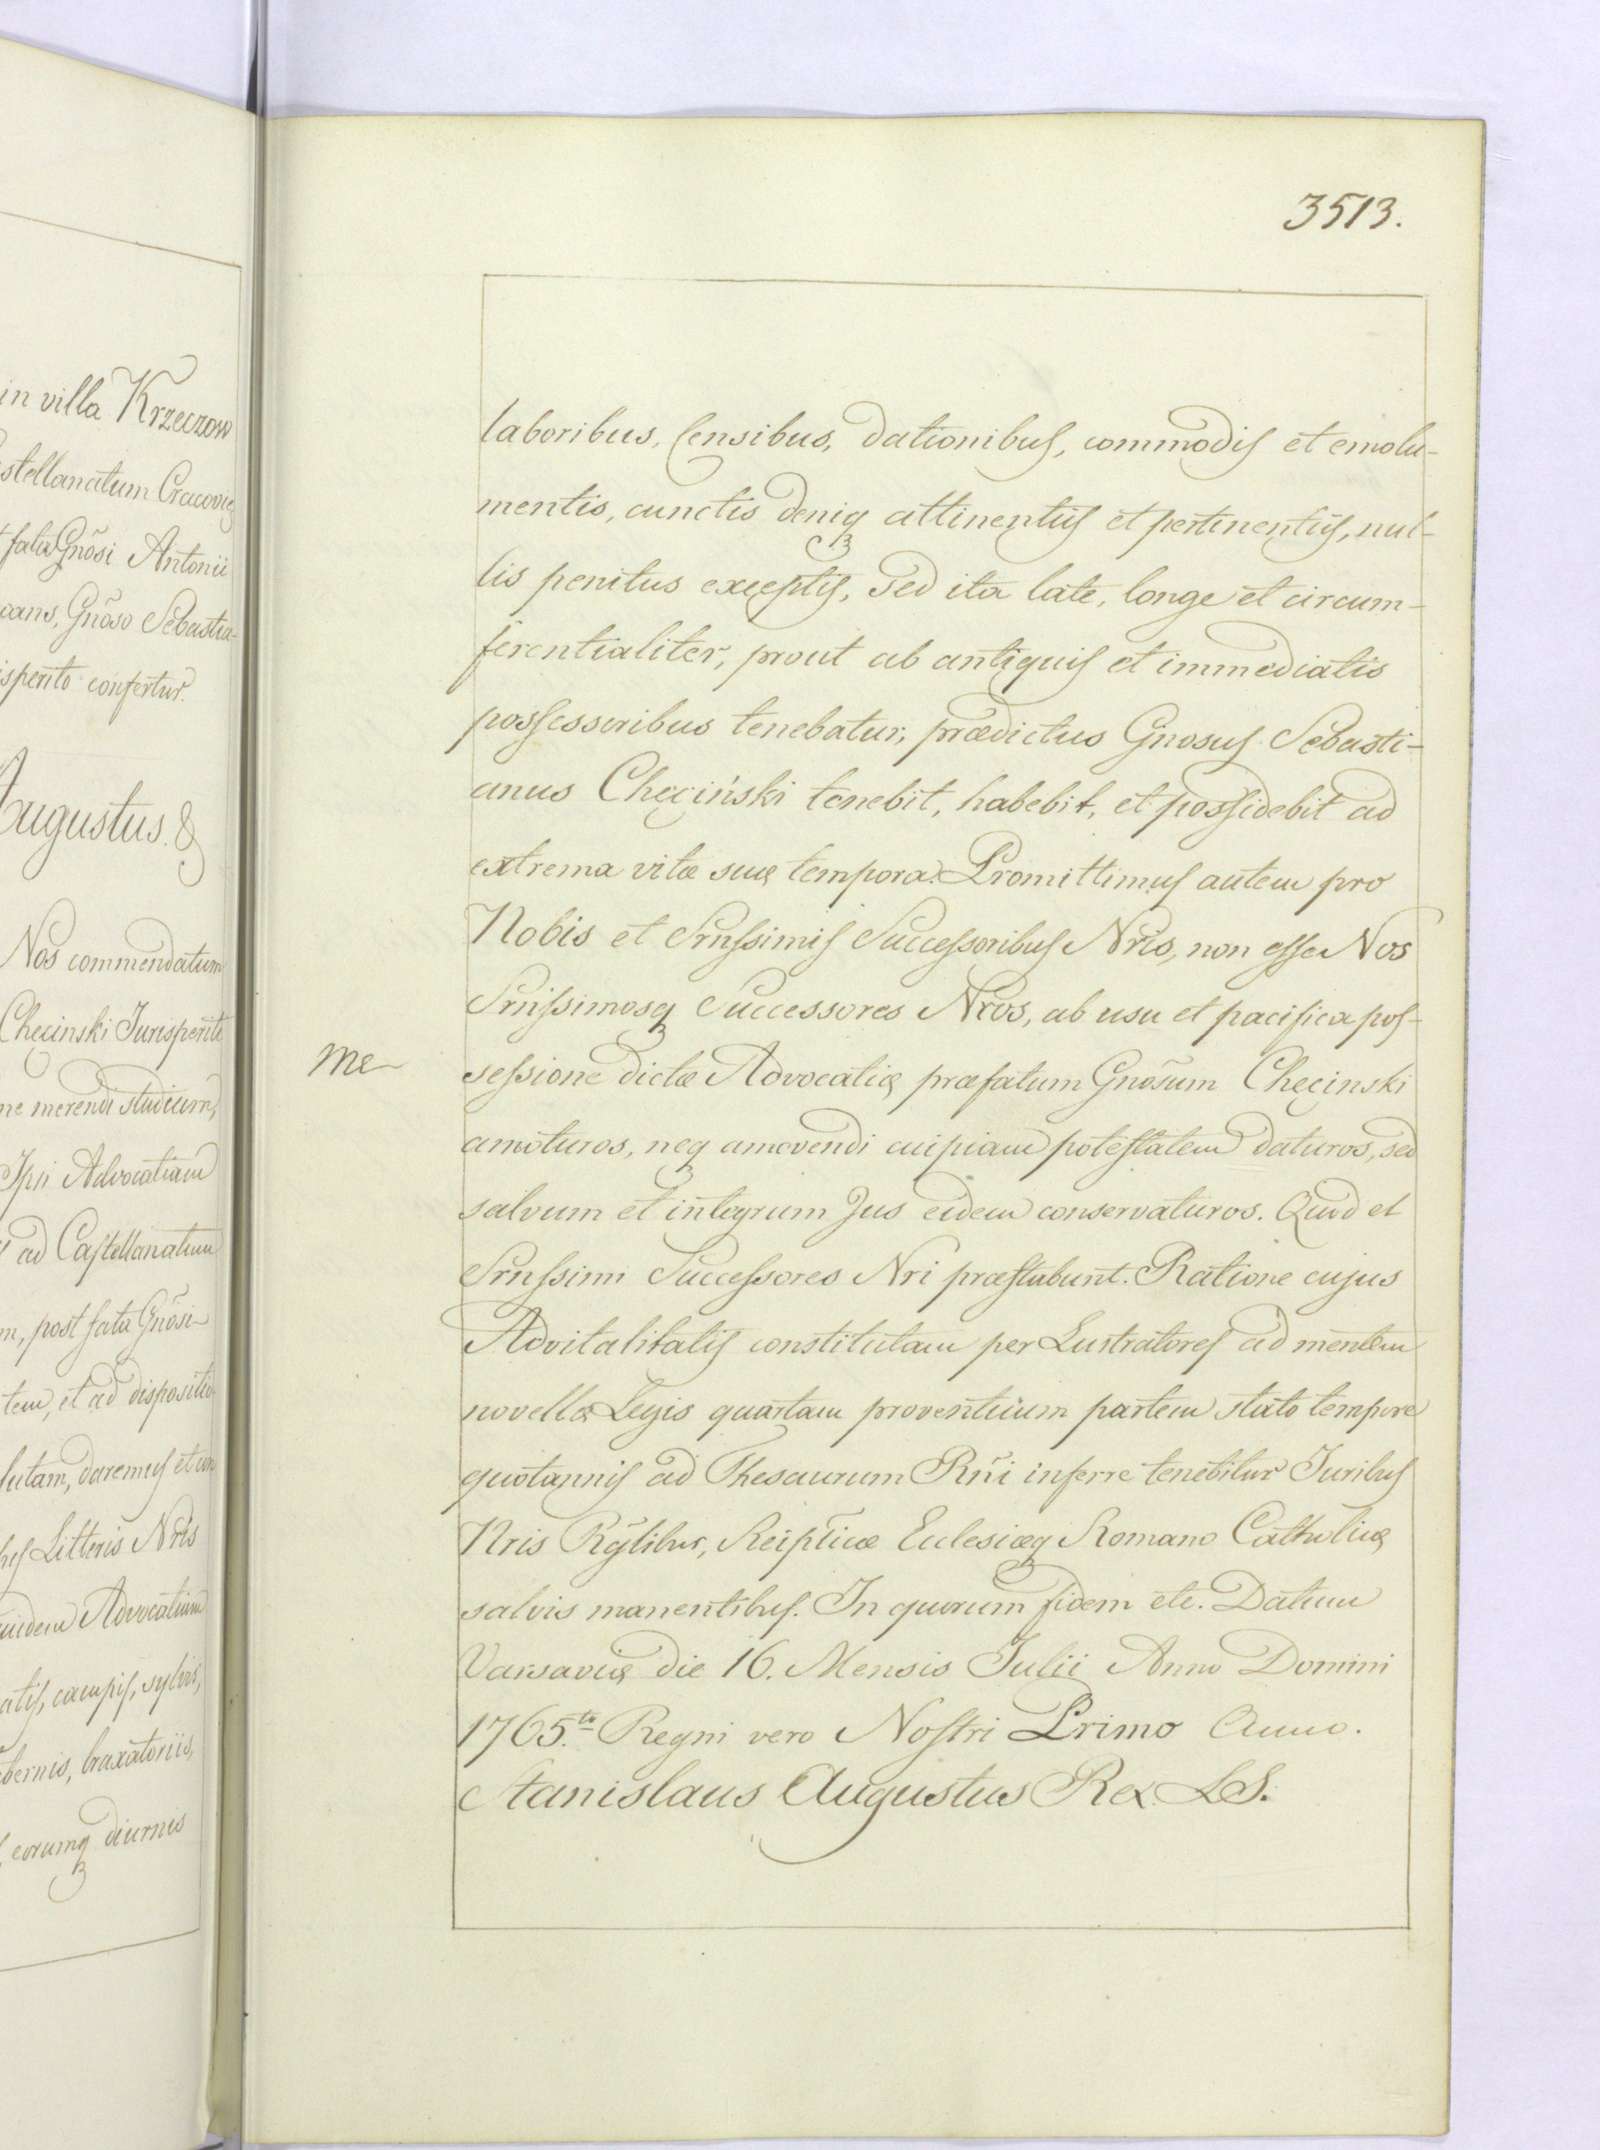 in villa Krzeczow
stellanatum Cracovię
fata Gnōsi Antonii
cans, Gnōso Sebastia-
isperito confertur.
Augustus. &
Nos commendatum
Chęcinski Jurisperiti
ne merendi studium,
Ipsi Advocatiam
ad Castellanatum
m, post fata Gnōsi
tem, et ad dispositio
lutam, daremus et con
hes Litteris Nris
uidem Advocatiam
atis, campis, sylvis,
bernis, braxatoriis,
eorumq diurnis
3513.
laboribus, Censibus, dationibus, commodis et emolu-
mentis, cunctis deniq attinentiis et pertinentiis, nul-
lis penitus exceptis, sed ita late, longe et circum-
ferentialiter, prout ab antiquis et immediatis
possessoribus tenebatur, prædictus Gnosus Sebasti-
anus Chęciński tenebit, habebit, et possidebit ad
extrema vitæ suę tempora. Promittimus autem pro
Nobis et Srnssimis Successoribus Nris, non esse Nos
Srnissimosq Successores Nros, ab usu et pacifica pos-
me
sessione dictæ Advocatię præfatum Gnōsum Chęcinski
amoturos, neq amovendi cuipiam potestatem daturos, sed
salvum et integrum Jus eidem conservaturos. Quod et
Srnssimi Successores Nri præstabunt. Ratione cujus
Advitalitatis constitutam per Lustratores ad mentem
novellæ Legis quartam proventuum partem stato tempore
quotannis ad Thesaurum Rñi inferre tenebitur Juribus
Nris Rglibus, Reiplicæ Ecclesiæq Romano Catholicę
salvis manentibus. In quorum fidem etc. Datum
Varsavię die 16. Mensis Julii Anno Domini
1765.to Regni vero Nostri Primo Anno.
Stanislaus Augustus Rex LS.